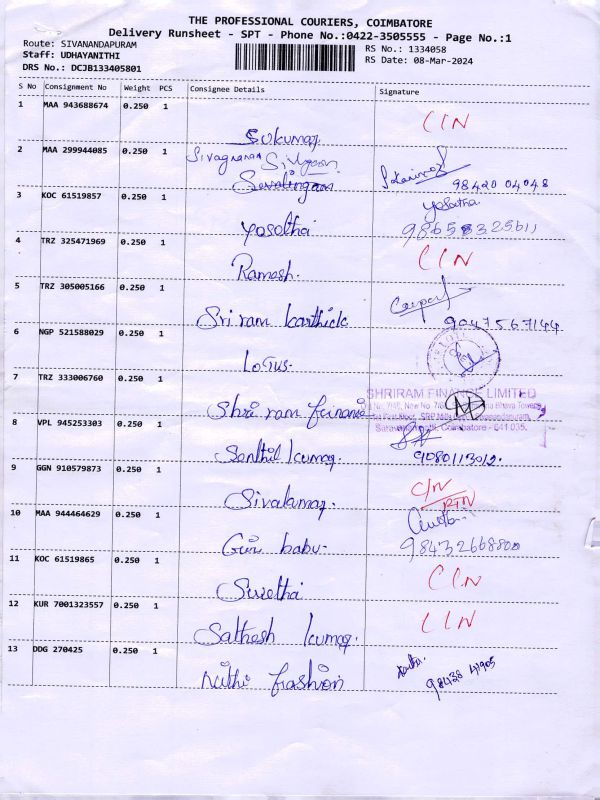 THE PROFESSIONAL COURIERS, COIMBATORE
Delivery Runsheet - SPT - Phone No.:0422-3505555 - Page No.:1
Route: SIVANANDAPURAM
Staff: UDHAYANITHI
DRS No.: DCJB133405801
RS No.: 1334058
RS Date: 08-Mar-2024
S No Consignment No Weight PCS Consignee Details Signature
1 MAA 943688674 0.250 1
Sukumar CIN
2 MAA 299944085 0.250 1
Sivagnanam
Sevalingam 98420 04048
3 KOC 61519857 0.250 1
Yasotha
Yosothai
4 TRZ 325471969 0.250 1
Ramesh. CIN
5 TRZ 305005166 0.250 1
Sri ram karthick 9047567144
6 NGP 521588029 0.250 1
Lotus.
7 TRZ 333006760 0.250 1
SHRIRAM FINANCE LIMITED
Shri ram finance
Coimbatore - 641 035.
8 VPL 945253303 0.250 1
Senthil kumar 9080113012.
9 GGN 910579873 0.250 1
Sivakumar. C/N
RTN
10 MAA 944464629 0.250 1
Guru babu. 98432668800
11 KOC 61519865 0.250 1
Swetha CIN
12 KUR 7001323557 0.250 1
Sathesh kumar CIN
13 DDG 270425 0.250 1
Nithi fashion 98438 41905